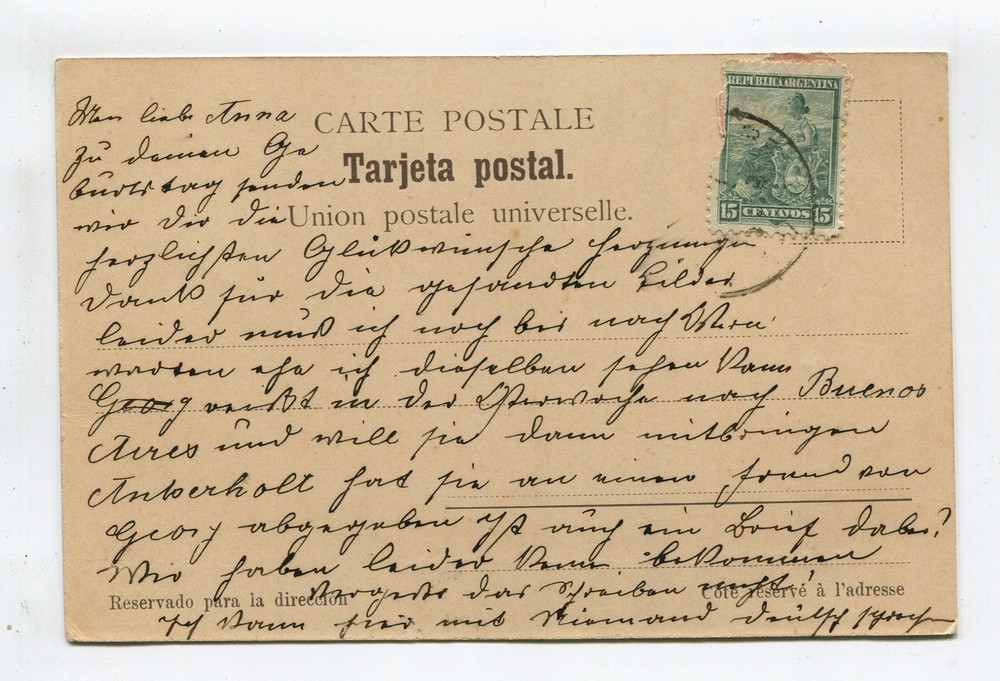 Mein liebe Anna
CARTE POSTALE
REPUBLICA ARGENTINA
15 CENTAVOS 15
zu deinen Ge
Tarjeta postal.
burtstag senden
wir dir die
Union postale universelle.
herzlichsten Glükwünsche
Dank für die gesandten Bilder
leider muß ich noch bis nach
warten ehe ich dieselben sehen kann
Georg reißt in der Osterwoche nach Buenos
Aires und will sie dann mitbringen
Ankerholt hat sie an einen Freund von
Georg abgegeben ist auch ein Brief dabei?
Wir haben leider kein bekommen
Reservado para la dirección
Côté réservé à l'adresse
vergeßt das Schreiben nicht!
Ich kann hier mit Niemand deutsch sprechen